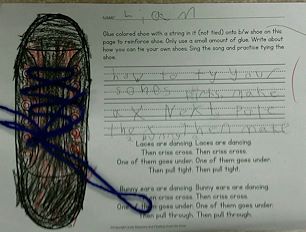 NAME: Liam
Glue colored shoe with a string in it (not tied) onto b/w shoe on this
page to reinforce shoe. Only use a small amount of glue. Write about
how you can tie your own shoes. Sing the song and practice tying the
shoe.
how to ty your
make
a x Next
the bunny then make
Laces are dancing. Laces are dancing.
Then criss cross. Then criss cross.
One of them goes under. One of them goes under.
Then pull tight. Then pull tight.
Bunny ears are dancing. Bunny ears are dancing.
Then criss cross. Then criss cross.
One of them goes under. One of them goes under.
Then pull through. Then pull through.